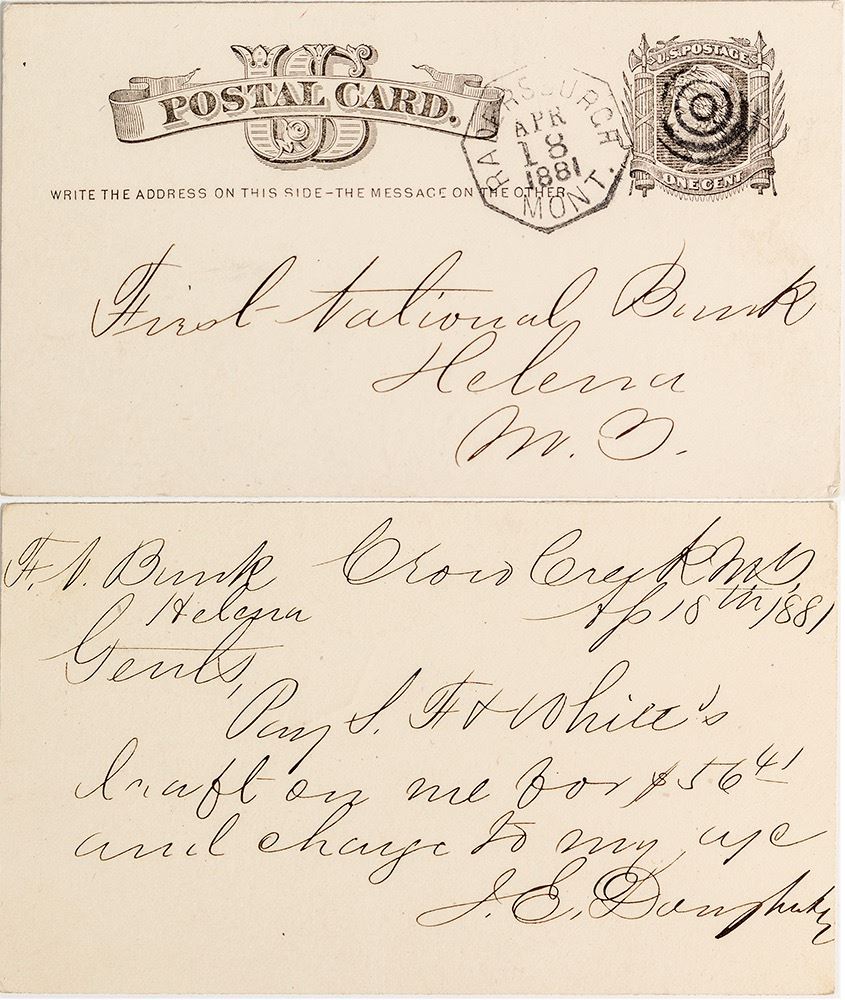 US
POSTAL CARD.
U.S. POSTAGE
ONE CENT
RADERSBURGH
APR
18
1881
MONT.
WRITE THE ADDRESS ON THIS SIDE-THE MESSAGE ON THE OTHER
First National Bank
Helena
M. T.
F. N. Bank Crow Creek M T,
Helena Ap 18th 1881
Gents,
Pay S. F &
draft on me for $56 41
and charge to my a/c
J. E. Dougherty